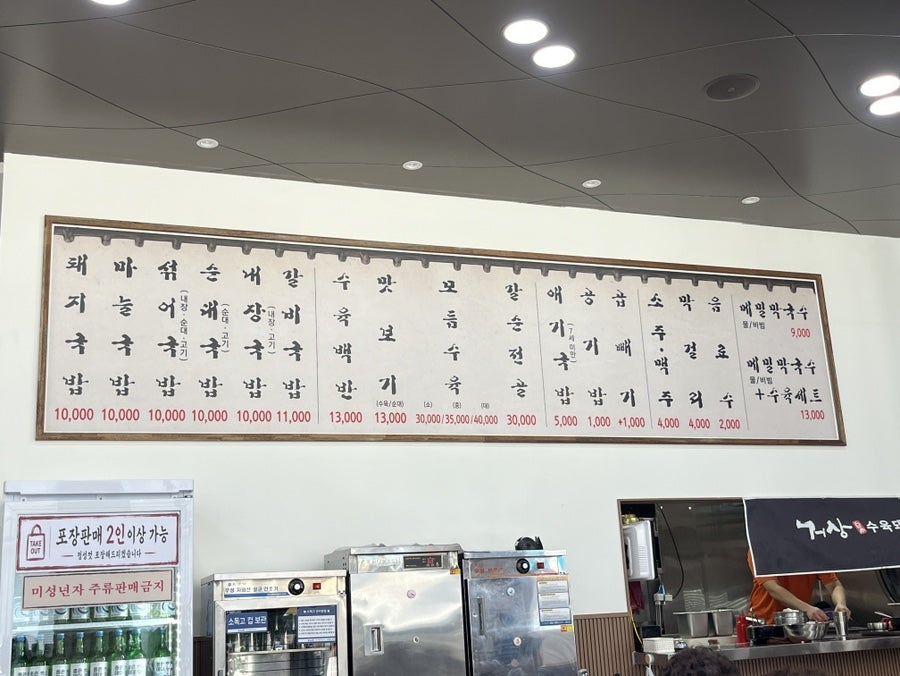 돼지국밥
10,000
마늘국밥
10,000
섞어국밥
(내장·순대·고기)
10,000
순대국밥
(순대·고기)
10,000
내장국밥
(내장·고기)
10,000
갈비국밥
11,000
수육백반
13,000
맛보기
(수육/순대)
13,000
모듬수육
(소) (중) (대)
30,000/35,000/40,000
갈순전골
30,000
애기국밥
(7세미만)
5,000
공기밥
1,000
곱빼기
+1,000
소주·맥주
4,000
막걸리
4,000
음료수
2,000
메밀막국수
물/비빔
9,000
메밀막국수
물/비빔
+수육세트
13,000
TAKE OUT
포장판매 2인이상 가능
정성껏 포장해드리겠습니다
미성년자 주류판매금지
소독고 컵 보관
거상
수육모